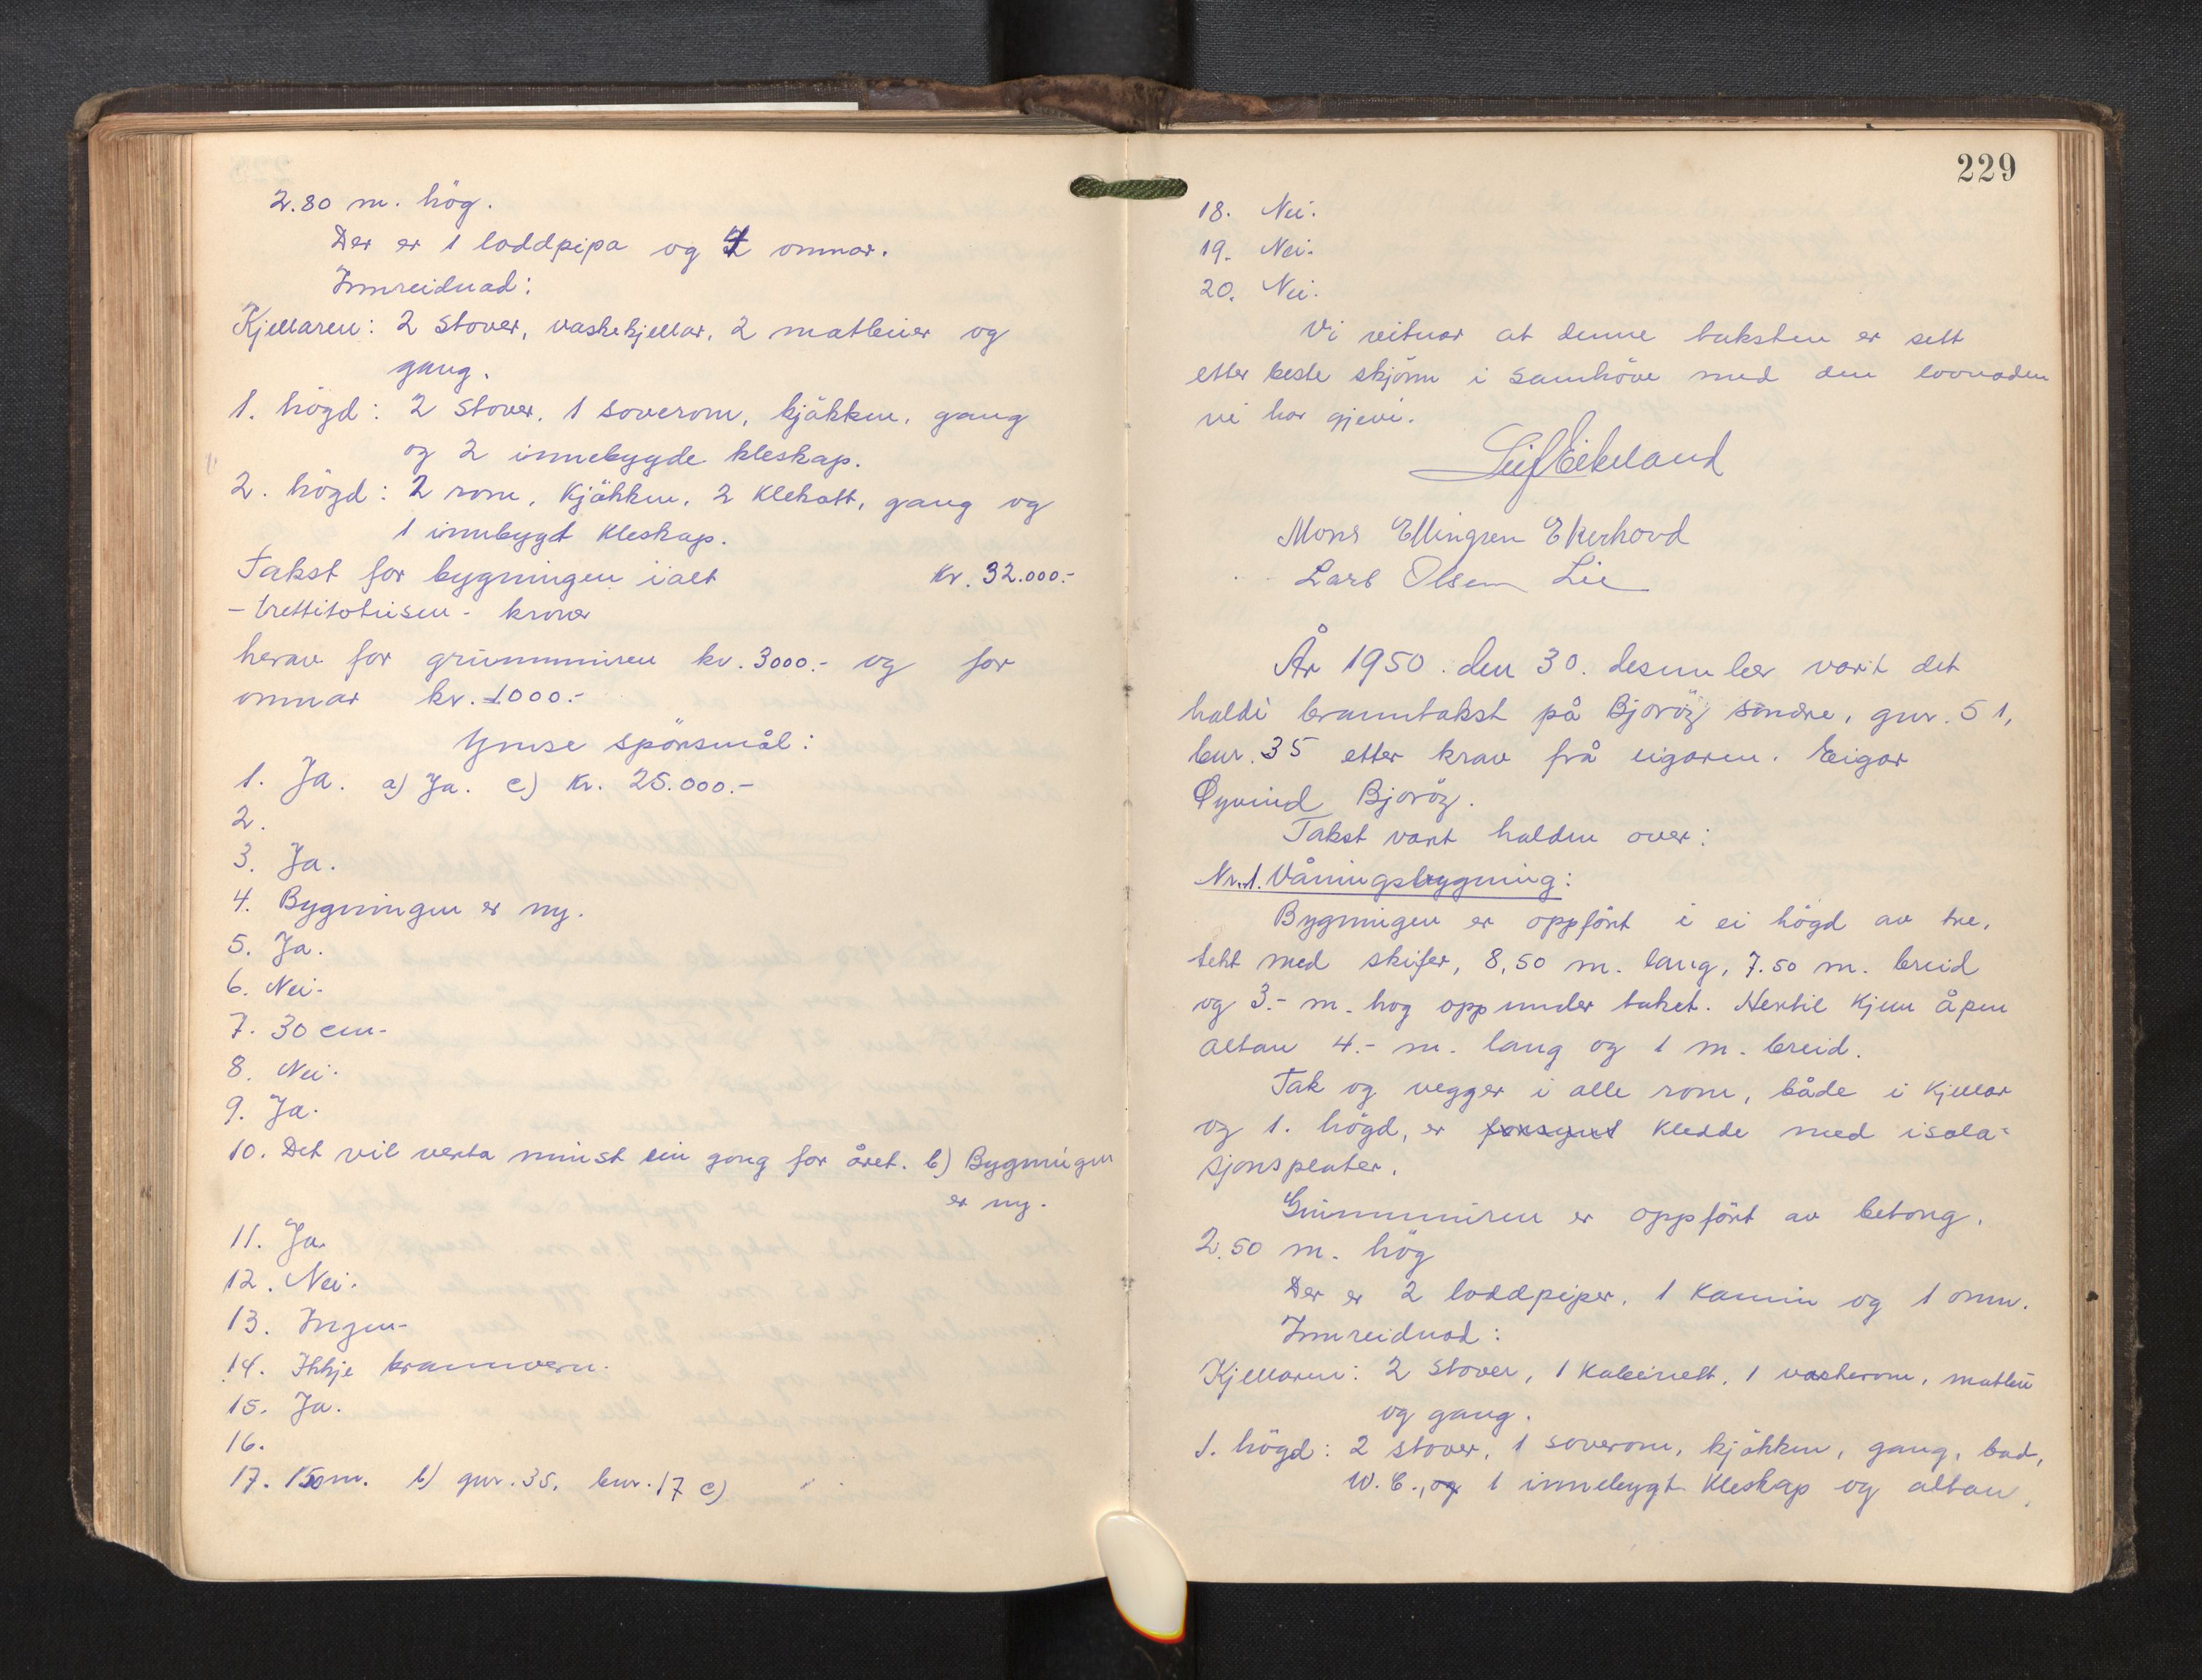 2.80 m. hög.
Der er 1 loddpipa og 4 omnar.
Innreidnad:
Kjellaren: 2 stover, vaskekjellar, 2 matbuer og
gang.
1. högd: 2 stover, 1 soverom, kjökken, gang
og 2 innebygde kleskap.
2. högd: 2 rom, kjökken, 2 klekott, gang og
1 innbygd kleskap.
Takst for bygningen ialt kr. 32.000.-
- trettitotusen - kroner
herav for grunnmuren kr. 3000.- og for
omnar kr. 1000.-
Ymse spörsmål:
1. Ja. a) Ja. c) kr. 25.000.-
2.
3. Ja.
4. Bygningen er ny.
5. Ja.
6. Nei.
7. 30 cm.
8. Nei.
9. Ja.
10. Det vil verta minst ein gong for året. b) Bygningen
er ny.
11. Ja.
12. Nei.
13. Ingen.
14. Ikkje brannvern.
15. Ja.
16.
17. 150m. b) gnr. 35. bnr. 17 c)
229
18. Nei.
19. Nei.
20. Nei.
Vi vitnar at denne taksten er sett
etter beste skjönn i samhöve med den lovnaden
vi har gjevi.
Leif Eikeland
Mons Ellingsen Ekerhovd
Lars Olsen Lie
År 1950 den 30. desember vart det
haldi branntakst på Bjoröy söndre, gnr. 51,
bnr. 35 etter krav frå eigaren. Eigar
Øyvind Bjoröy.
Takst vart halden over:
Nr. 1. Våningsbygning:
Bygningen er oppfört i ei högd av tre,
tekt med skifer, 8,50 m. lang, 7.50 m. breid
og 3.- m. hog opp under taket. Hertil kjem åpen
altan 4.- m. lang og 1 m. breid.
Tak og vegger i alle rom, både i kjellar
og 1. högd, er kledde med isola-
sjonsplater.
Grunnmuren er oppfört av betong,
2.50 m. hög
Der er 2 loddpiper, 1 kamin og 1 omn.
Innreidnad:
Kjellaren: 2 stover, 1 kabinett, 1 vaskerom, matbu
og gang.
1. högd: 2 stover, 1 soverom, kjökken, gang, bad,
W.C., og 1 innebygt kleskap og altan.